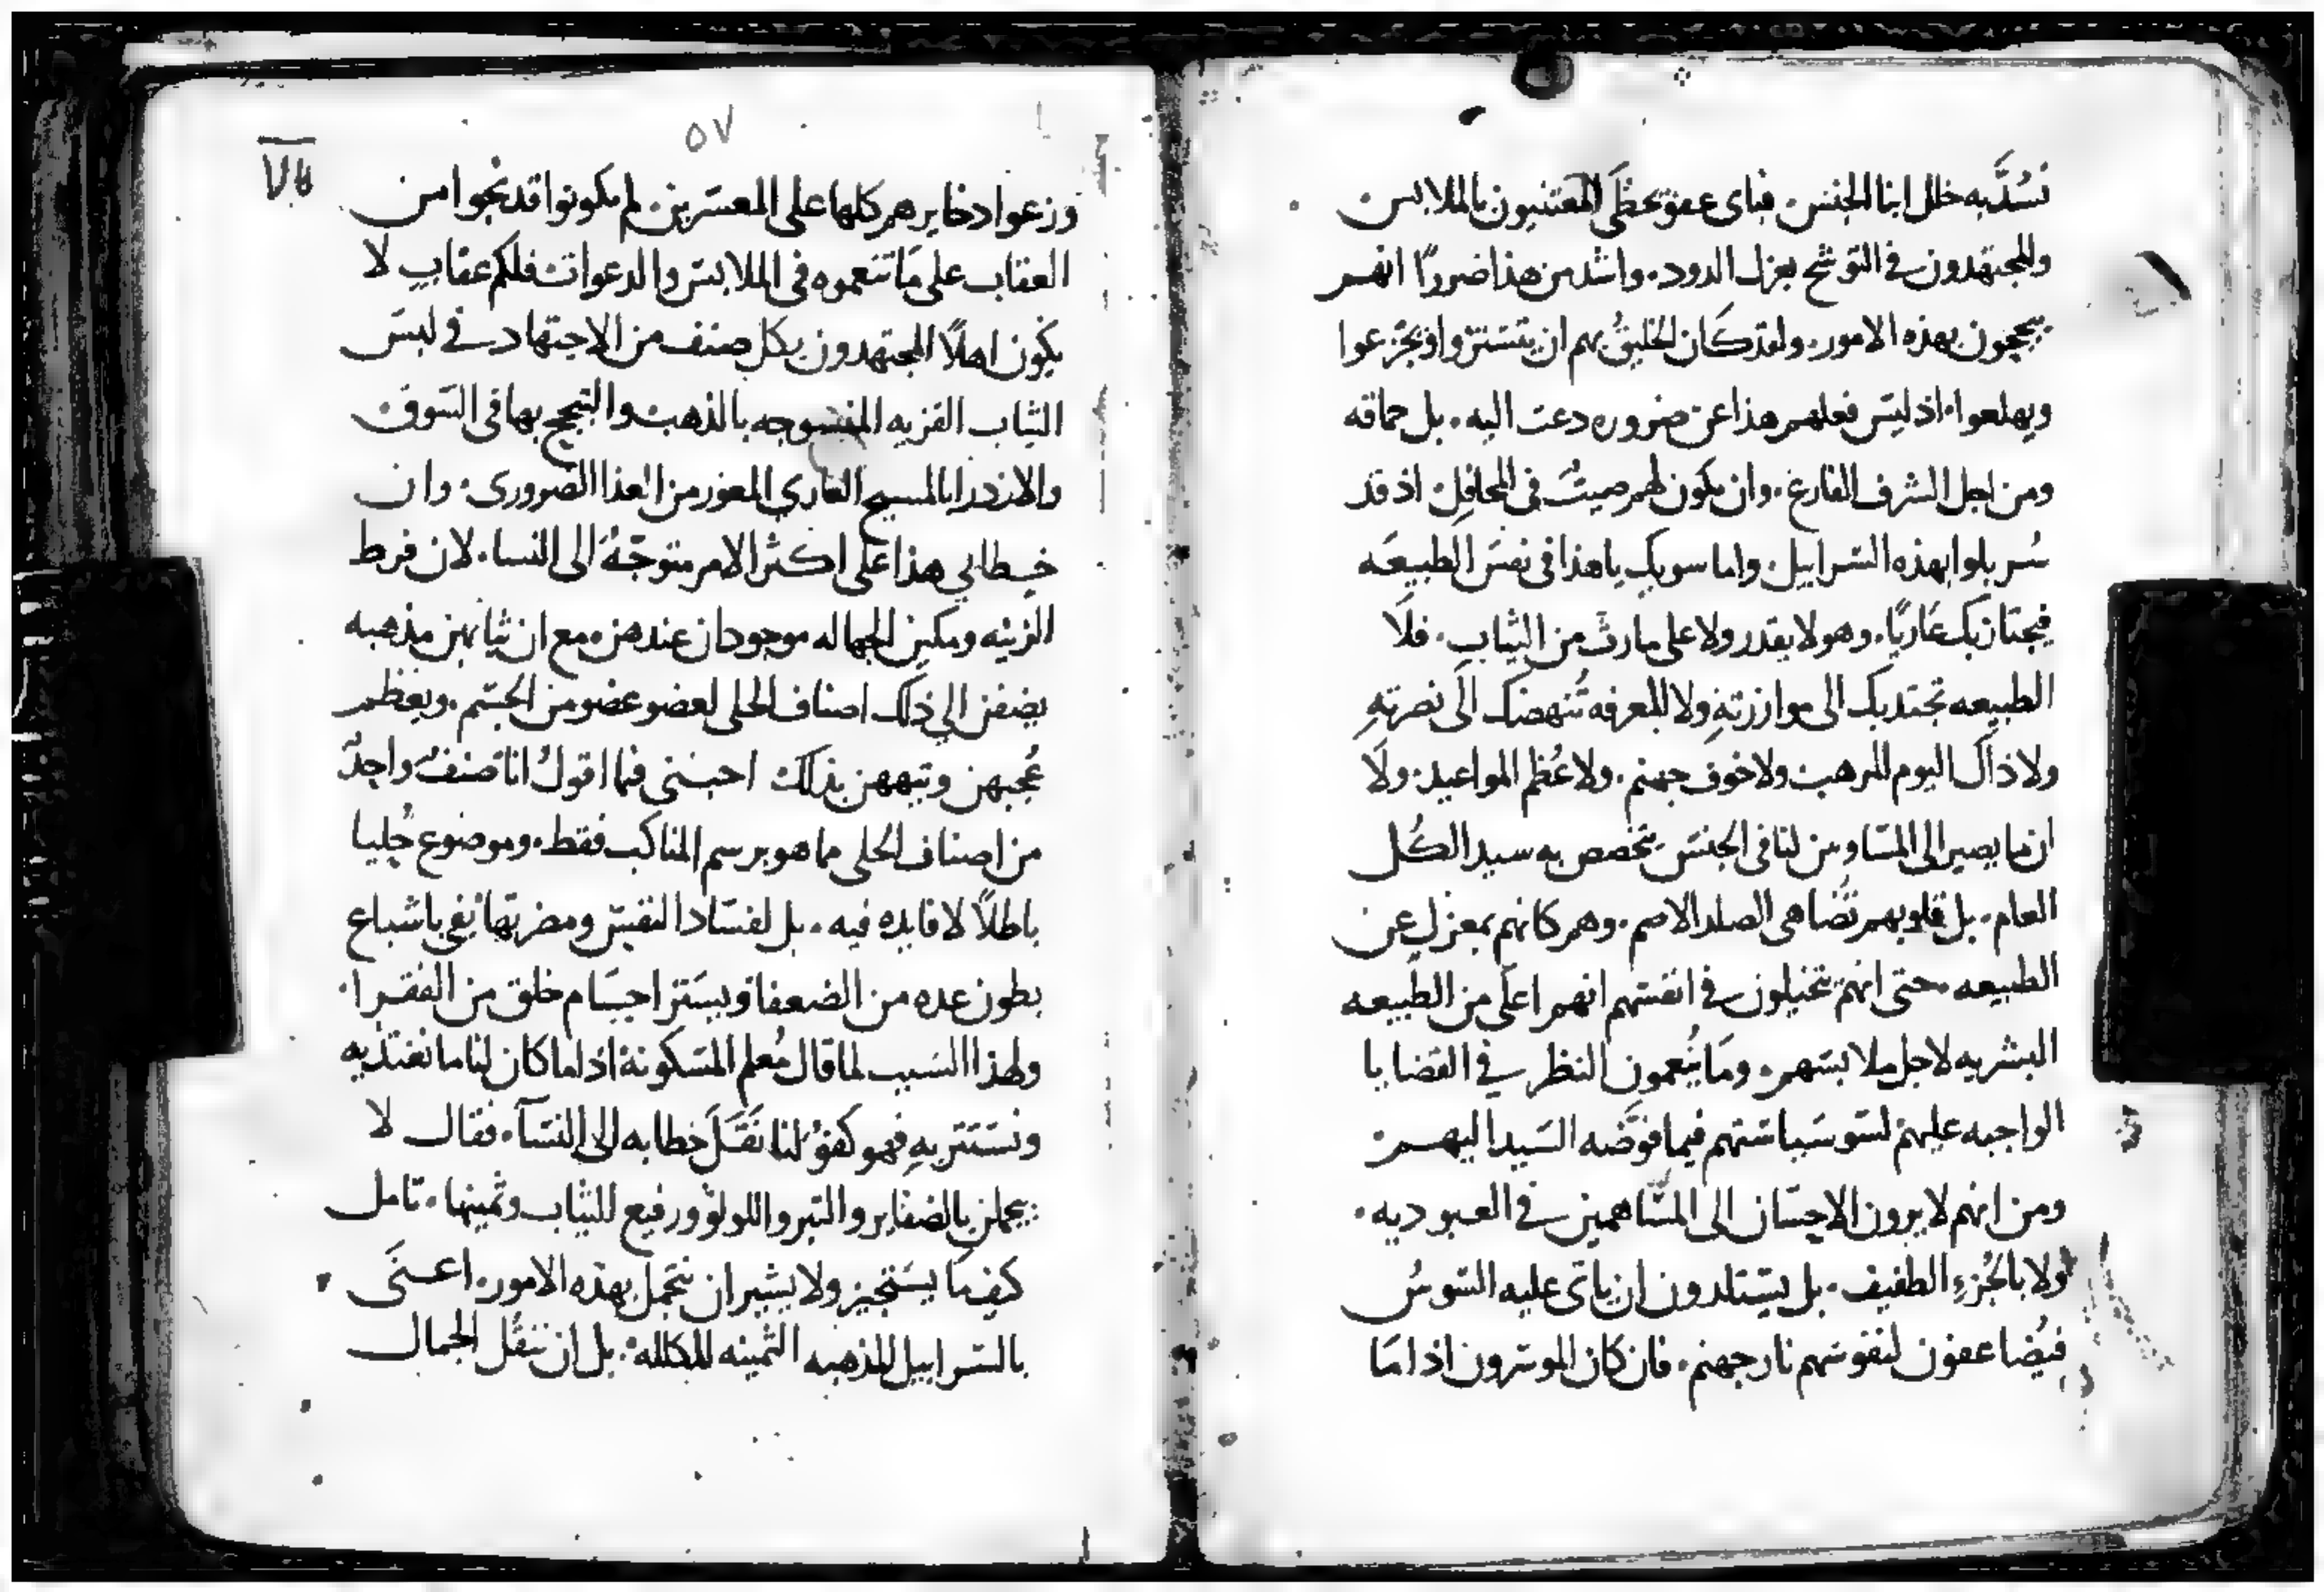 نسُدَّ به خلل ابنا الجنس. فباى عفو يحظَى المعتنيون بالملابس
والمجتهدون في التوشح بغزل الدود. واشد من هذا ضررًا انهم
يبججون بهذه الامور. ولقد كَان الخليقُ بهم ان يتستروا ويجزعوا
ويهلعوا. اذ ليس فعلهم هذا عن ضروره دعت اليه. بل حماقه
ومن اجل الشرف الفارغ. وان يكون لهم صيتٌ في المحافل. اذ قد
سُربلوا بهذه السرابيل. واما سويك يا هذا في نفس الطبيعَه
فيجتاز بك عَاريًا. وهو لا يقدر ولا على ما رثّ من الثياب. فلَا
الطبيعه تجتدبك الى موازرتهِ ولا المعرفه تُنهضك الَى نصرتهِ
ولا ذاك اليوم المرهب ولا خوف جهنم. ولا عُظم المواعيد. ولَا
ان ما يصير الى المساوين لنا في الجنس يتخصص به سيد الكُل
العام. بل قلوبهم تضاهى الصلد الاصم. وهم كانهم بمعزل عن
الطبيعه. حتى انهم يتخيلون في انفسهم انهم اعلَى من الطبيعه
البشريه لاجل ملابسهم. ومَا يُنعمون النظر في القضايا
الواجبه عليهم لسو سياستهم فيما فوّضه السَيد اليهم
ومن انهم لا يرون الاحسَان الى المسَاهمين في العبوديه.
ولا بالجُزءِ الطفيف. بل يستلدون ان ياتى عليه السوسُ
فيُضاعفون لنفوسهم نار جهنم. فان كان الموسرون اذا مَا
٥٧
وزعوا دخايرهم كلها على المعسرين. لم يكونوا قد نجوا من
العقاب على مَا تنعموه في الملابس والدعوات فلكم عقابٍ لا
يكون اهلًا المجتهدون بكل صنف من الاجتهاد في لبس
الثياب القزيه المنسوجه بالذهب والتبجح بها في السَوق
والازدرا بالمسيح العاري المعوز من الغذا الضرورى. وان
خطابي هذا على اكثر الامر متوجّهٌ الى النسا. لان فرط
الزينه ومكين الجهاله موجودان عندهن. مع ان ثيابهن مذهبه
يضفن الي ذلك اصناف الحلى لعضو عضو من الجسَم. ويعظم
عُجبهن وتيههن بذلك احسَبنى فما اقولُ انا صنفٌ واحدٌ
من اصناف الحلى مما هو برسم المناكب فقط. وموضوع حُليا
باطلًا لا فايده فيه. بل لفسَاد النفيس ومضرتها يفى باشباع
بطون عده من الضعفا ويسَتر اجسَام خلق من الفقرا.
ولهذا السَبب لما قال مُعلم المسَكونة اذا ما كان لنا ما نغتذي به
ونسَتتر بهِ فهو كفوٌ لنا نَقَلَ خطابه الى النسَآ. فقال لا
يتجملن بالضفاير والتبر واللولو ورفيع الثياب وثمينها. تامل
كيف مَا يسَتجيز ولا يشير ان نتجمل بهذه الامور. اعنَى
بالسَرابيل المذهبه الثمينه المكلله. بل ان ننقُل الجمال